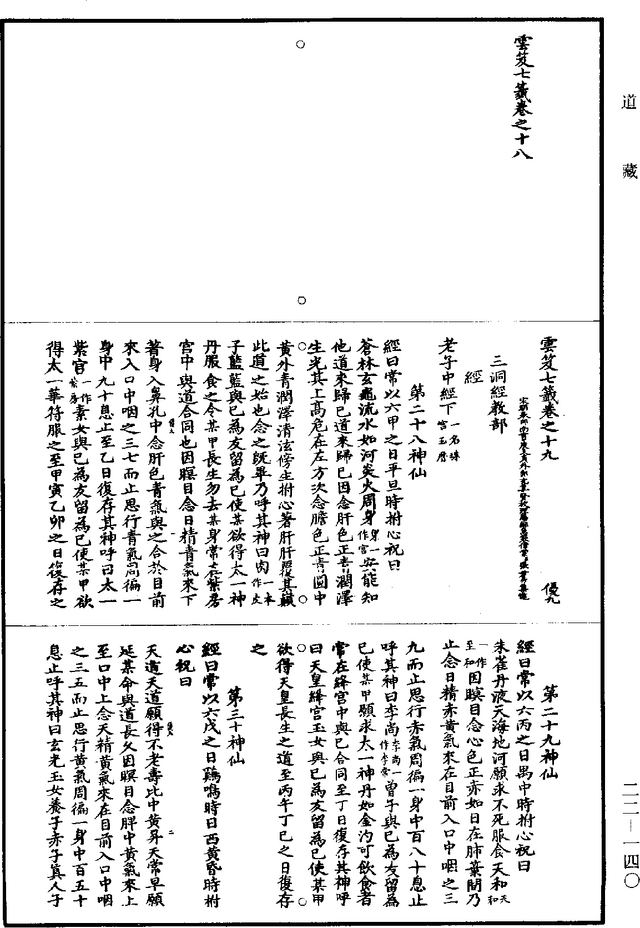 道藏
雲笈七籤卷之十八
雲笈七籤卷之十九 優九
三洞經教部
經
老子中經下一名珠宮玉曆
第二十八神仙
經曰常以六甲之日平旦時拊心祝曰
蒼林玄龜流水如河炎火周身身一作宮安能知
他道來歸己道來歸己因念肝色正青潤澤
生光其上高危在左方次念膽色正青圓中
黃外青潤澤清泫傍生拊心著肝肝覆其巔
此道之始也念之既畢乃呼其神曰肉一本作文
子藍藍與己為友留為己使某欲得太一神
丹服食之令某甲長生勿去某身常在紫房
宮中與道合同也因瞑目念日精青氣來下
著身入鼻孔中念肝色青氣與之合於目前
來入口中咽之三七而止思行青氣周徧一
身中九十息止至乙日復存其神呼曰太一
紫官一作紫房素女與己為友留為己使某甲欲
得太一華符服之至甲寅乙卯之日復存之
第二十九神仙
經曰常以六丙之日禺中時拊心祝曰
朱雀丹液天海地河願求不死服食天和天和一作至和
因瞑目念心色正赤如日在肺葉間乃
止念日精赤黃氣來在目前入口中咽之三
九而止思行赤氣周徧一身中百八十息止
呼其神曰李尚李尚一作李常曾子與己為友留為
己使某甲願求太一神丹如金汋可飲食者
常在絳宮中與己合同至丁日復存其神呼
曰天皇絳宮玉女與己為友留為己使某甲
欲得天皇長生之道至丙午丁巳之日復存
之
第三十神仙
經曰常以六戊之日鷄鳴時日西黃昏時拊
心祝曰
天道天道願得不老壽比中黃昇天常早願
延某命與道長久因瞑目念脾中黃氣來上
至口中上念天精黃氣來在目前入口中咽
之三五而止思行黃氣周徧一身中百五十
息止呼其神曰玄光玉女養子赤子真人子
二二—一四〇